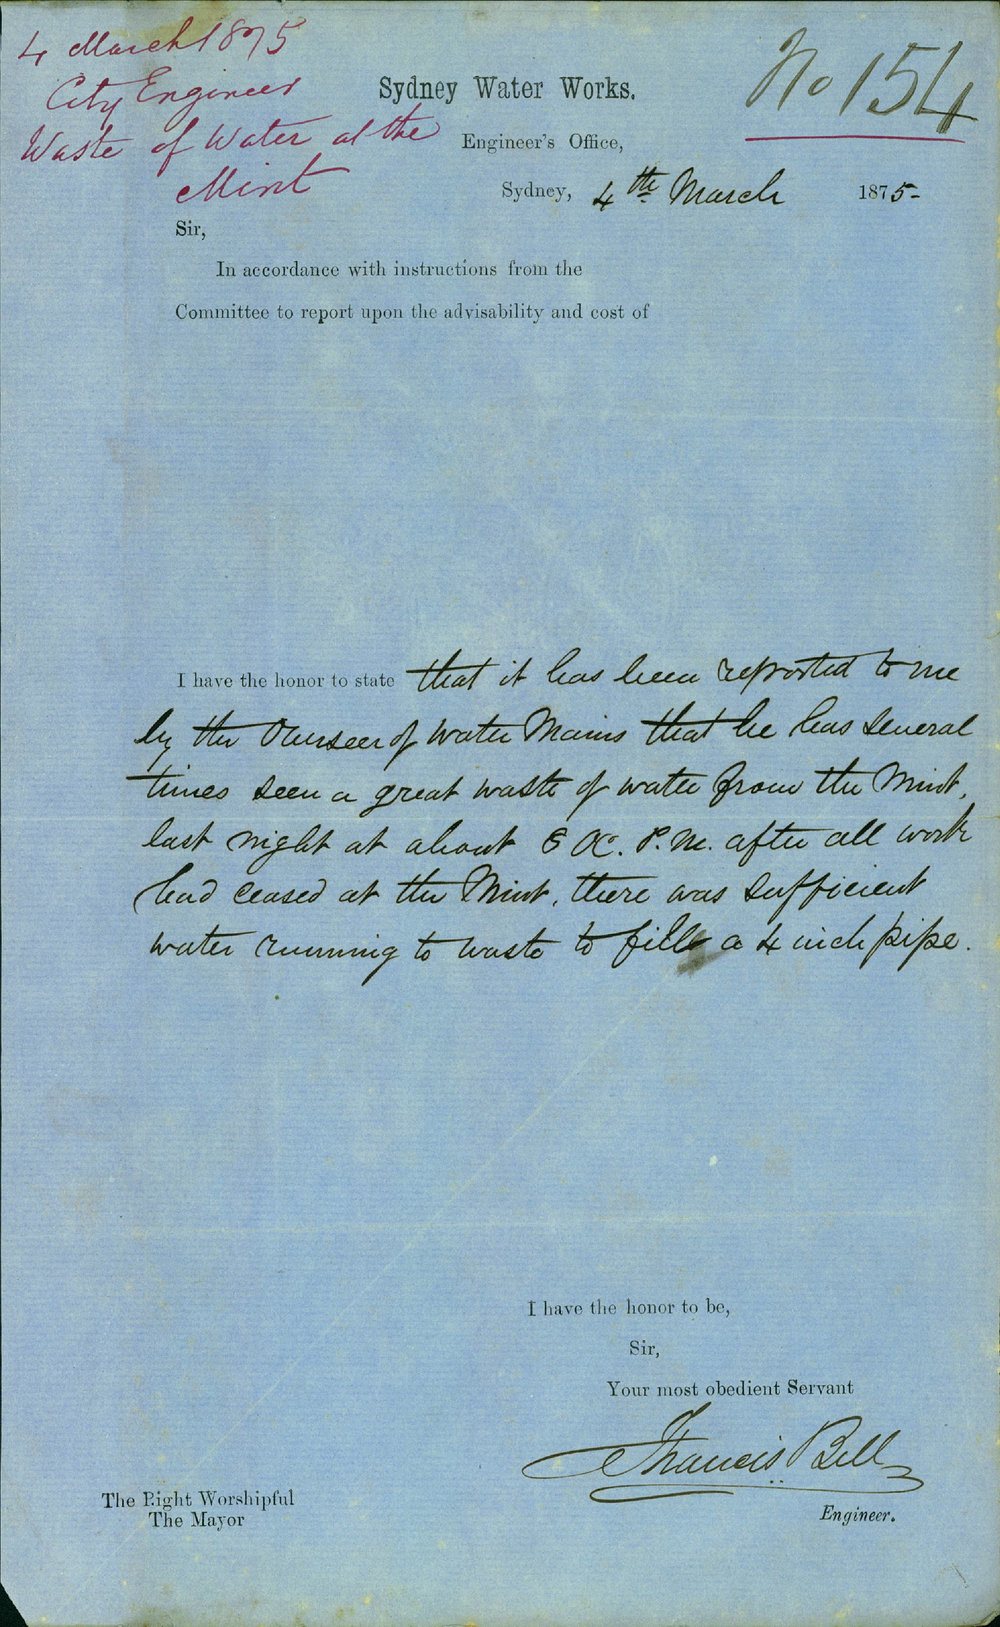 4 March 1875
City Engineer
Waste of Water at the
Mint
No 154
Sydney Water Works.
Engineer's Office,
Sydney, 4th March 1875-
Sir,
In accordance with instructions from the
Committee to report upon the advisability and cost of
I have the honor to state that it has been reported to me
by the Overseer of Water Mains that he has several
times seen a great waste of water from the Mint,
last night at about OC. P.M. after all work
had ceased at the Mint, there was sufficient
water running to waste to fill a 4 inch pipe.
I have the honor to be,
Sir,
Your most obedient Servant
Francis Bell
Engineer.
The Right Worshipful
The Mayor